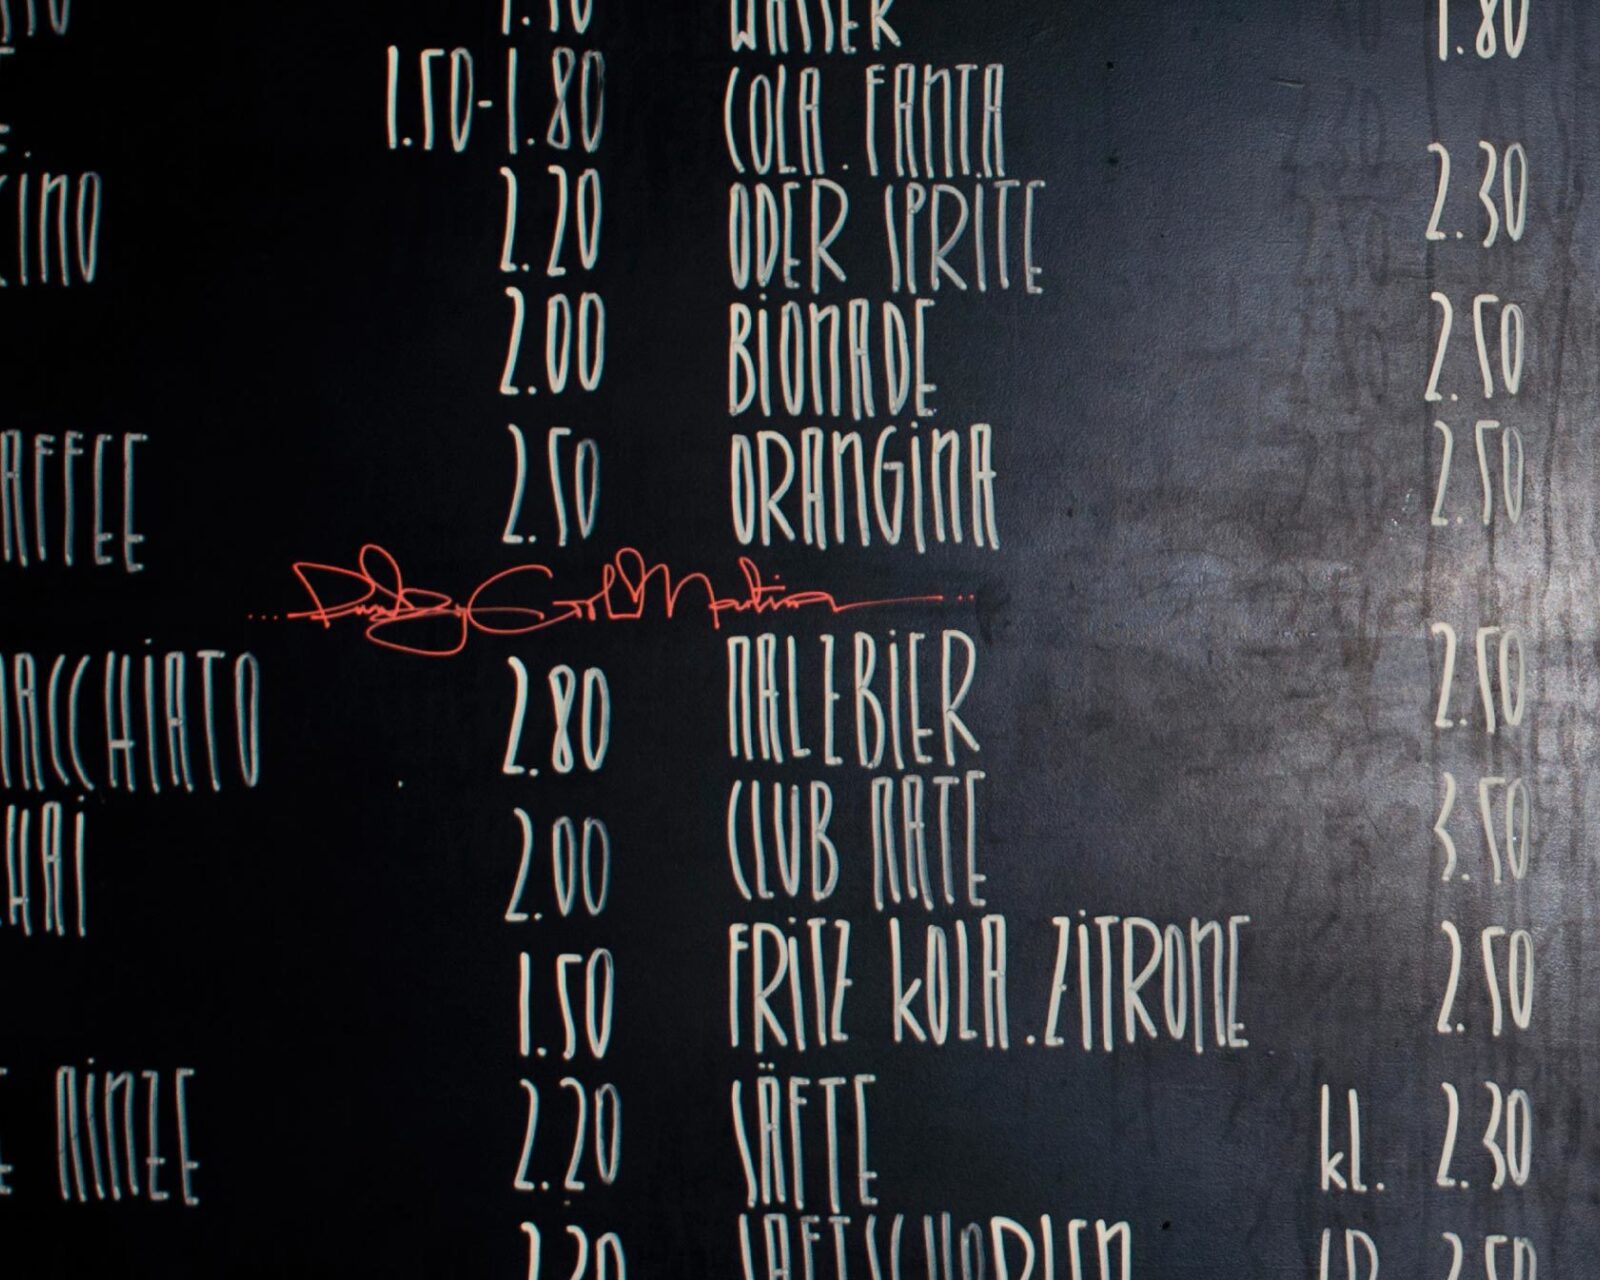 1.50
1.50-1.80
2.20
2.00
AFFEE 2.50
ACCHiATO 2.80
HAi 2.00
1.50
MiNZE 2.20
WASSER 1.80
COLA. FANTA
ODER SPRiTE 2.30
BiONADE 2.50
ORANGiNA 2.50
MALZBiER 2.50
CLUB MATE 3.50
FRiTZ kOLA.ZiTRONE 2.50
SÄFTE kl. 2.30
SAFTSCHORLEN 2.50